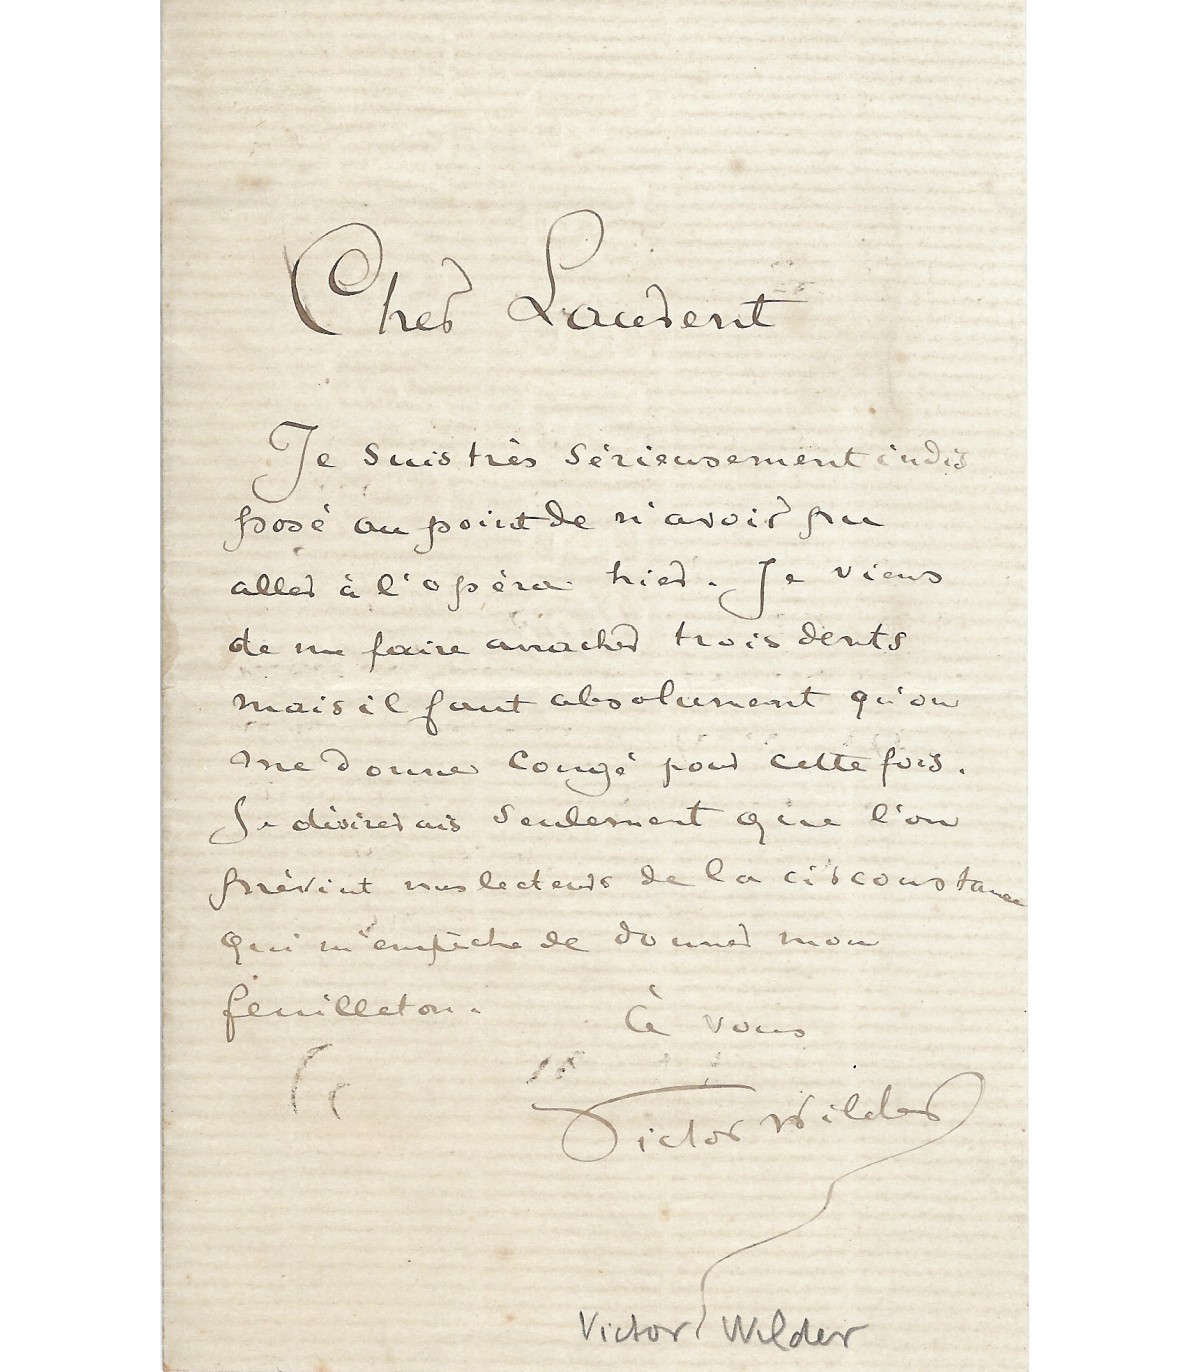 Cher Laurent
Je suis très sérieusement indis
posé au point de n'avoir pu
aller à l'opéra hier. Je viens
de me faire arracher trois dents
mais il faut absolument qu'on
me donne congé pour cette fois.
Je désirerais seulement que l'on
prévint nos lecteurs de la circonstance
qui m'empêche de donner mon
feuilleton.
À vous
Victor Wilder
Victor Wilder